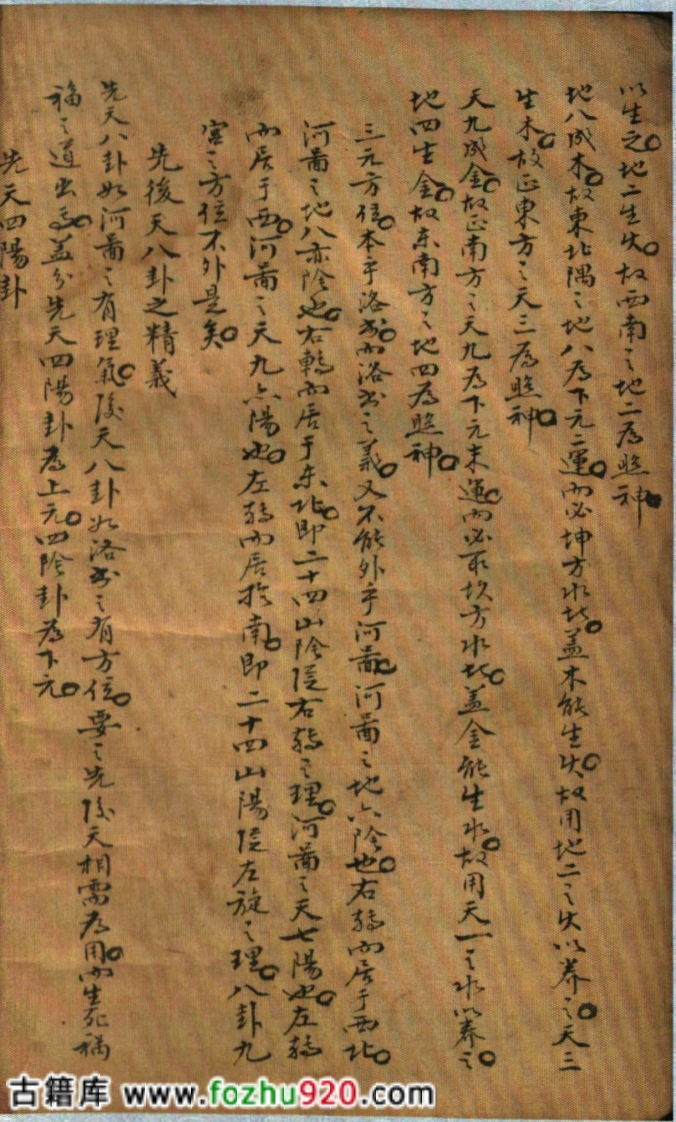 以生之。地二生火。故西南之地二為照神。
地八成木。故東北隅之地八為下元二運。而必坤方水起。蓋木能生火。故用地二之火以养之。天三
生木。故正東方之天三為照神。
天九成金。故正南方之天九為下元末運。而必取坎方水起。蓋金能生水。故用天一之水以养之。
地四生金。故东南方之地四為照神。
三元方位。本乎洛书。而洛书之義。又不能外乎河啚。河啚之地六陰也。右轉而居于西北。
河啚之地八亦陰也。右轉而居于东北。即二十四山陰陡右轉之理。河啚之天七陽也。左轉
而居于西。河啚之天九亦陽也。左轉而居於南。即二十四山陽陡左旋之理。八卦九
宮之方位不外是矣。
先後天八卦之精義
先天八卦如河啚之有理氣。後天八卦如洛书之有方位。要之先後天相需為用。而生死禍
福之道出焉。蓋分先天四陽卦為上元。四陰卦為下元。
先天四陽卦
古籍库 www.fozhu920.com